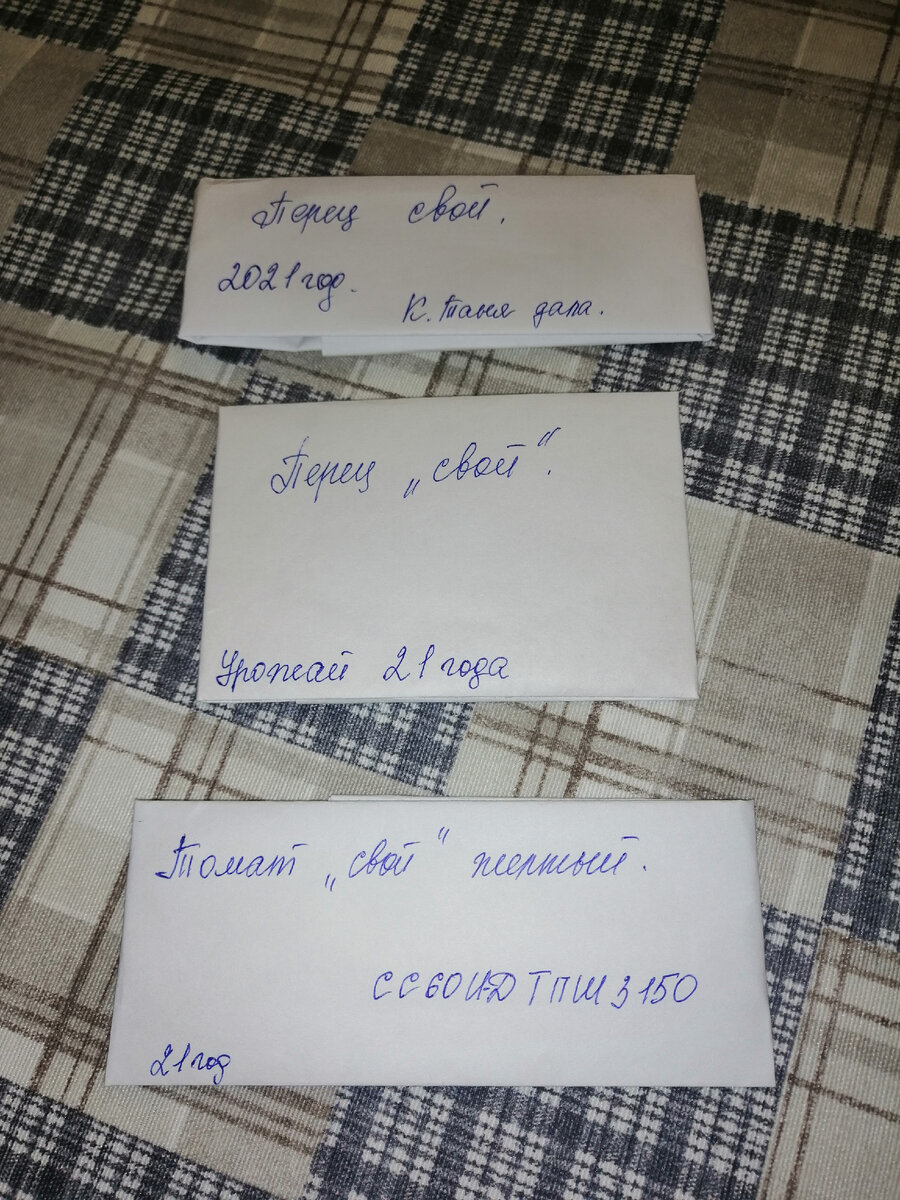 Перец свой.
2021 год.
К. Таня дала.
Перец „свой“.
Урожай 21 года
Томат „свой“ желтый.
СС60И-ДТПШ3150
21 год